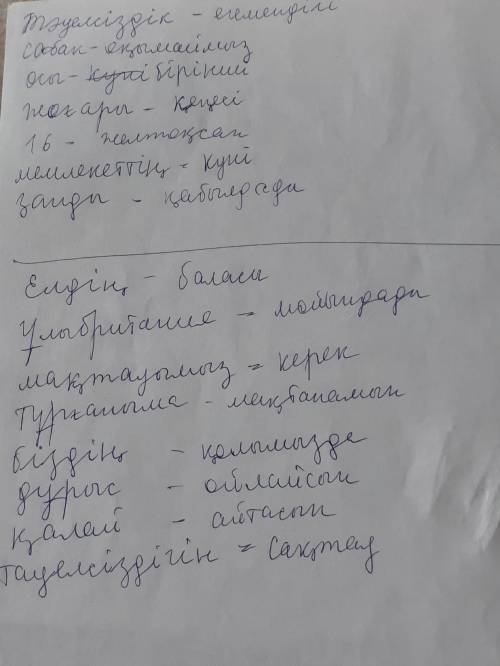 Тәуелсіздік - егемендігі
сабак - оқымаймыз
осы - күні бірінші
жоғары - кеңесі
16 - желтоқсан
мемлекеттің = күні
заңды - қабылдады
Елдің - баласы
Ұлыбритание - мойындады
мақтауымыз = керек
тұрғаныма - мақтанамын
біздің - қолымызда
дұрыс - ойлайсың
қалай - айтасың
тәуелсіздігін = сақтау